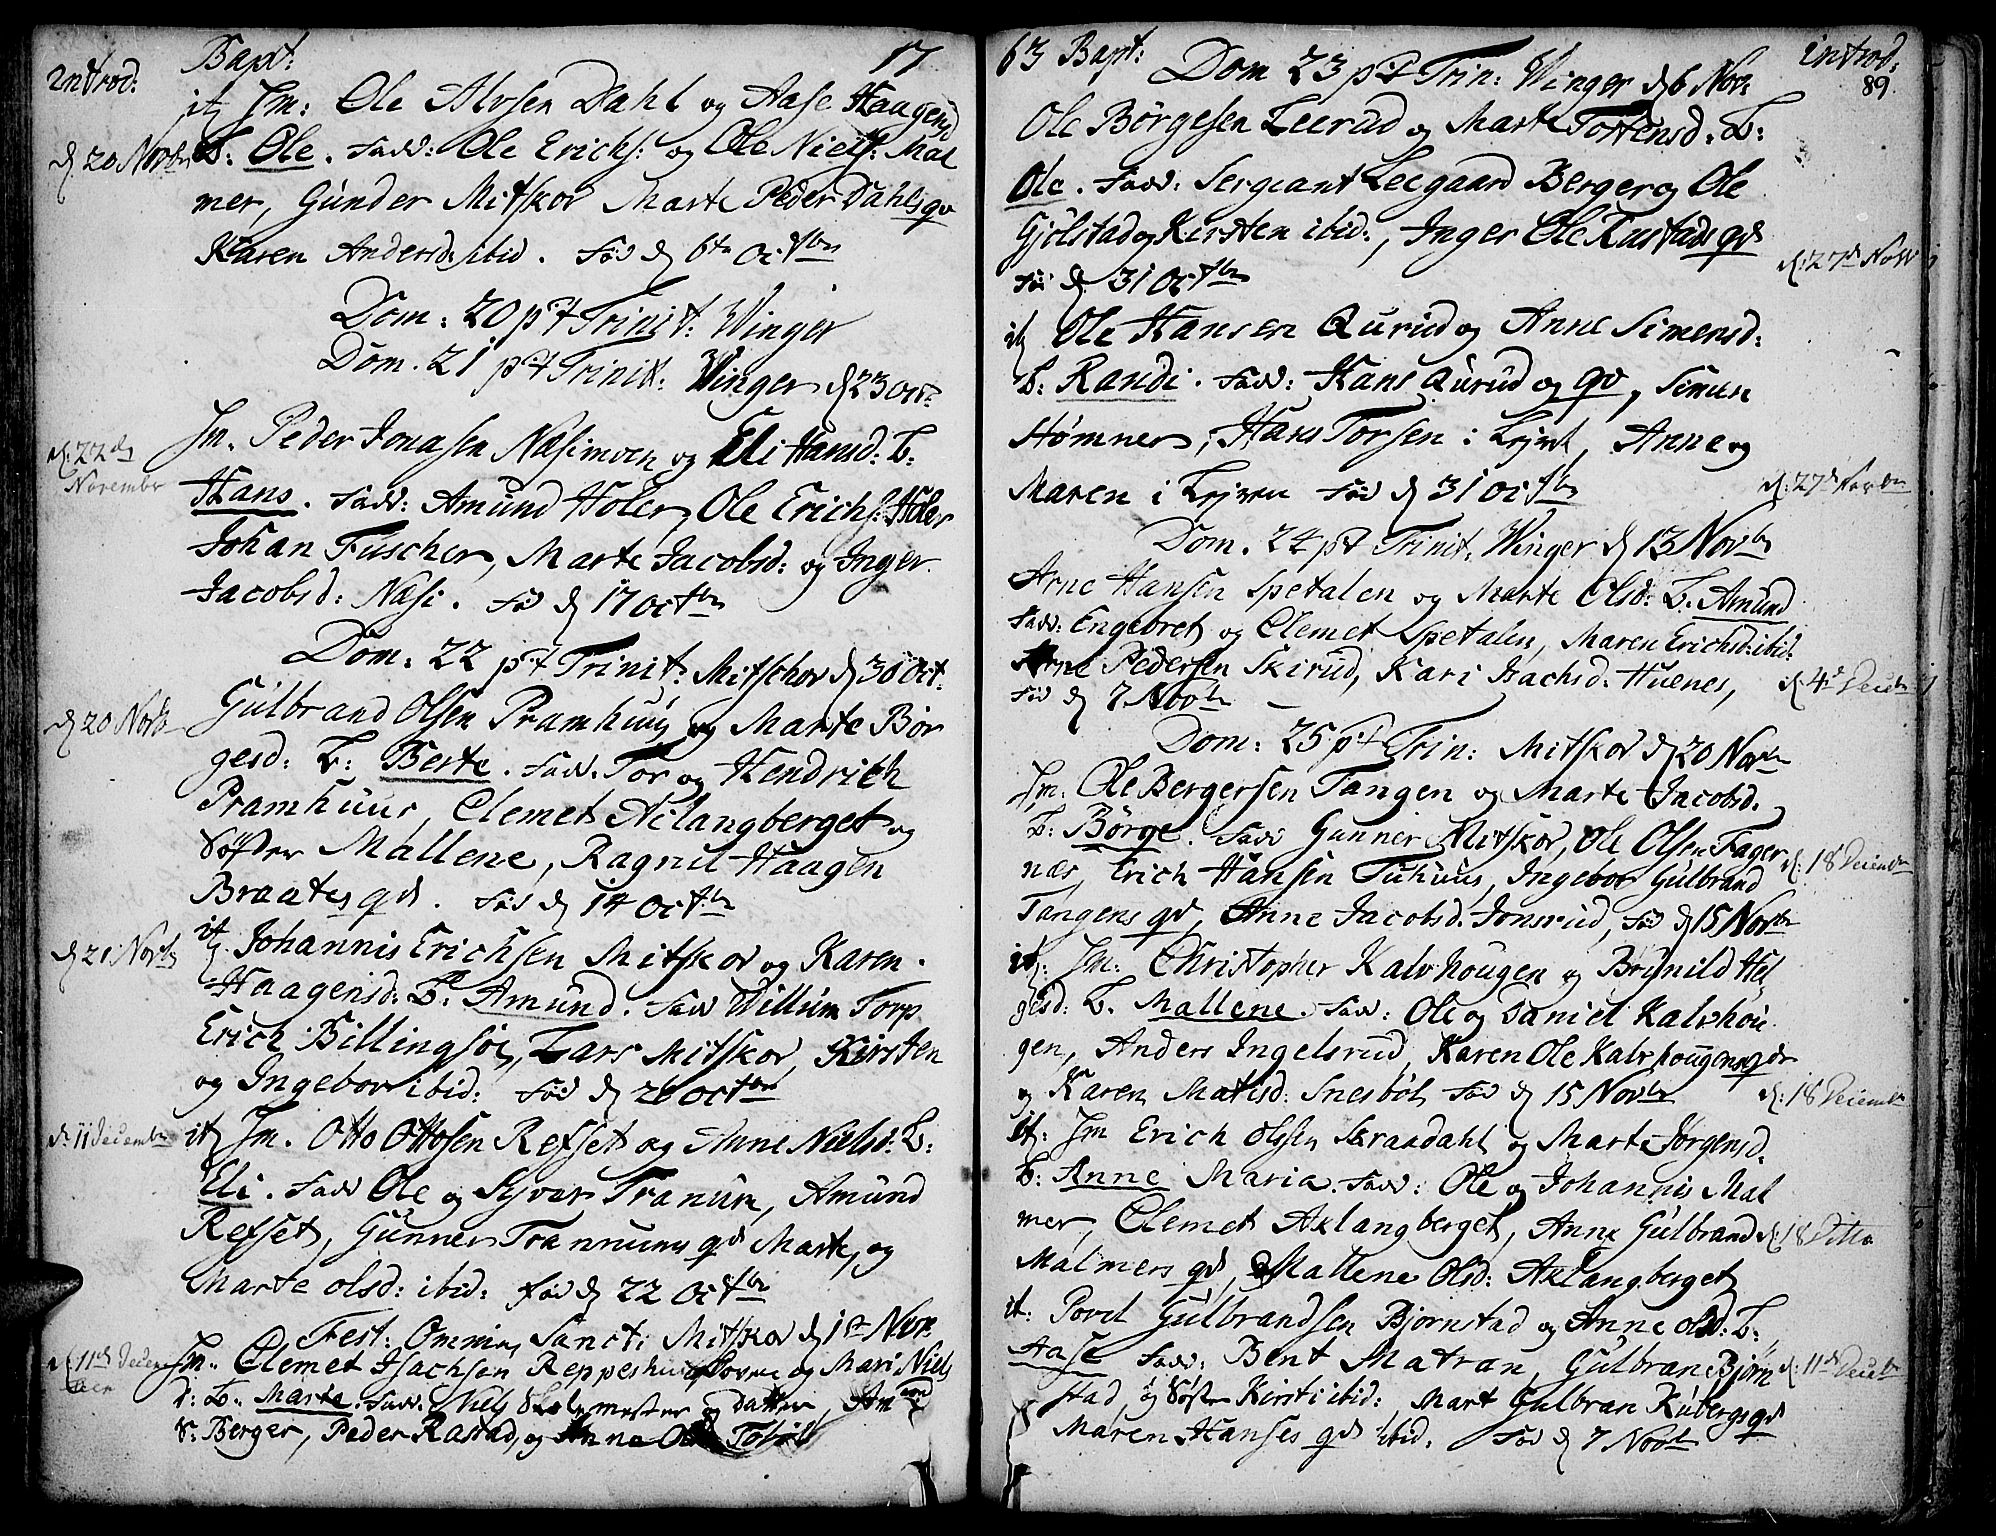 Introd: Bapt: 17
it Jm: Ole Alvsen Dahl og Aase Haagensd
d 20 Novbr B: Ole. Fadd: Ole Erichs: og Ole Niels: Mal
mer, Gunder Mitskov Marte Peder Dahls qv
Karen Andersd: ibid. Fød d 6te Octbr
Dom: 20 p:t Trinit: Winger
Dom. 21 p:t Trinit: Winger d 23 Oct:
Jm. Peder Jonasen Næsimoen og Eli Hansd: B:
d: 22de November
Hans. Fadd: Amund Holer, Ole Erichs: Holer
Johan Fuscher, Marte Jacobsd: og Inger
Jacobsd: Næsi. Fød d 17 Octbr
Dom: 22 p:t Trinit: Mitschov d 30 Oct:
d 20 Novb Gulbrand Olsen Pramhuus og Marte Bør
gesd: B: Berte. Fadd. Tor og Hendrich
Pramhuus, Clemet Aclangberget og
Søster Mallene, Ragnil Haagen
Braates qv. Fød d 14 Octbr
d 21 Novb it Johannis Erichsen Mitskov og Karen
Haagensd: B: Amund. Fadd Willum Torp
Erich Billingsøe, Lars Mitskov, Kirsten
og Ingebor ibid: Fød d 26 Octbr
d: 11 Decembr it Jm. Otto Ottosen Refset og Anne Nielsd: B:
Eli. Fadd Ole og Syver Tranum, Amund
Refset, Gunner Trannums qv Marte, og
Marte Olsd: ibid: Fød d 22 Octbr
Fest: Omnium Sancti Mitskov d 1st Nov:
d 11de Decem Jm. Clemet Isachsen Reppeshuus og Mari Niels
d: B. Marte. Fadd: Niels Skolemester og Datter, Am
S: Berger, Peder Rastad, og Anne Ols
63 Bapt: Introd:
89.
Dom 23 p:t Trin: Winger d 6 Nov:
Ole Børgesen Leerud og Marte Torsensd. B:
Ole. Fadd: Sergeant Leegaard Berger og Ole
Gjølstad og Kirsten ibid:, Inger Ole Rastads qv
Fød d 31 Octbr d: 27de Nov
it Ole Hansen Qurud og Anne Simensd:
B: Randi. Fadd: Hans Qurud og qv, Simen
Stømner, Hans Torsen i Lejren, Anne og
Maren i Lejren Fød d 31 Octbr d: 27de Novbr
Dom. 24 p:t Trinit: Winger d 13 Novbr
Arne Hansen Spetalen og Marte Olsd: B. Amund
Fadd: Engebret og Clemet Spetalen, Maren Erichsd: ibid:
Arne Pedersen Skirud, Kari Isachsd: Huenes,
Fød d 7 Novbr d: 4de Decbr
Dom: 25 p:t Trin: Mitskov d 20 Novbr
Jm. Ole Bergersen Tangen og Marte Jacobsd.
B: Børge. Fadd Gunner Mitskov, Ole Olsen Fager
nær, Erich Hansen Tuhuus, Ingebor Gulbrand d: 18 Decembr
Tangens qv, Anne Jacobsd. Jonsrud, Fød d 15 Novbr
it: Jm: Christopher Kalvhougen og Brynild Hel
gesd: B. Mallene. Fadd: Ole og Daniel Kalvhou
gen, Anders Ingelsrud, Karen Ole Kalvhougens qv
og Karen Matisd: Snesbøl Fød d 15 Novbr d: 18 Decembr
it: Jm Erich Olssen Skraadahl og Marte Jørgensd.
B: Anne Maria. Fadd: Ole og Johannis Mal
mer, Clemet Aklangberget, Anne Gulbrand d: 18 Ditto
Malmers qv, Mallene Olsd: Aklangberget
it: Povel Gulbrandsen Bjornstad og Anne Olsd: B:
Aase Fadd: Bent Matran, Gulbran Bjørn d: 11de Decbr
stad, og Søster Kirsti ibid:, Mart Gulbran Kubergs qv
Maren Hanses qv ibid. Fød d 7 Novbr